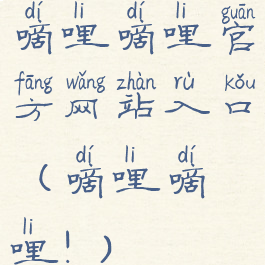 dí li dí li guān
嘀哩嘀哩官
fāng wǎng zhàn rù kǒu
方网站入口
dí li dí
(嘀哩嘀
li
哩!)